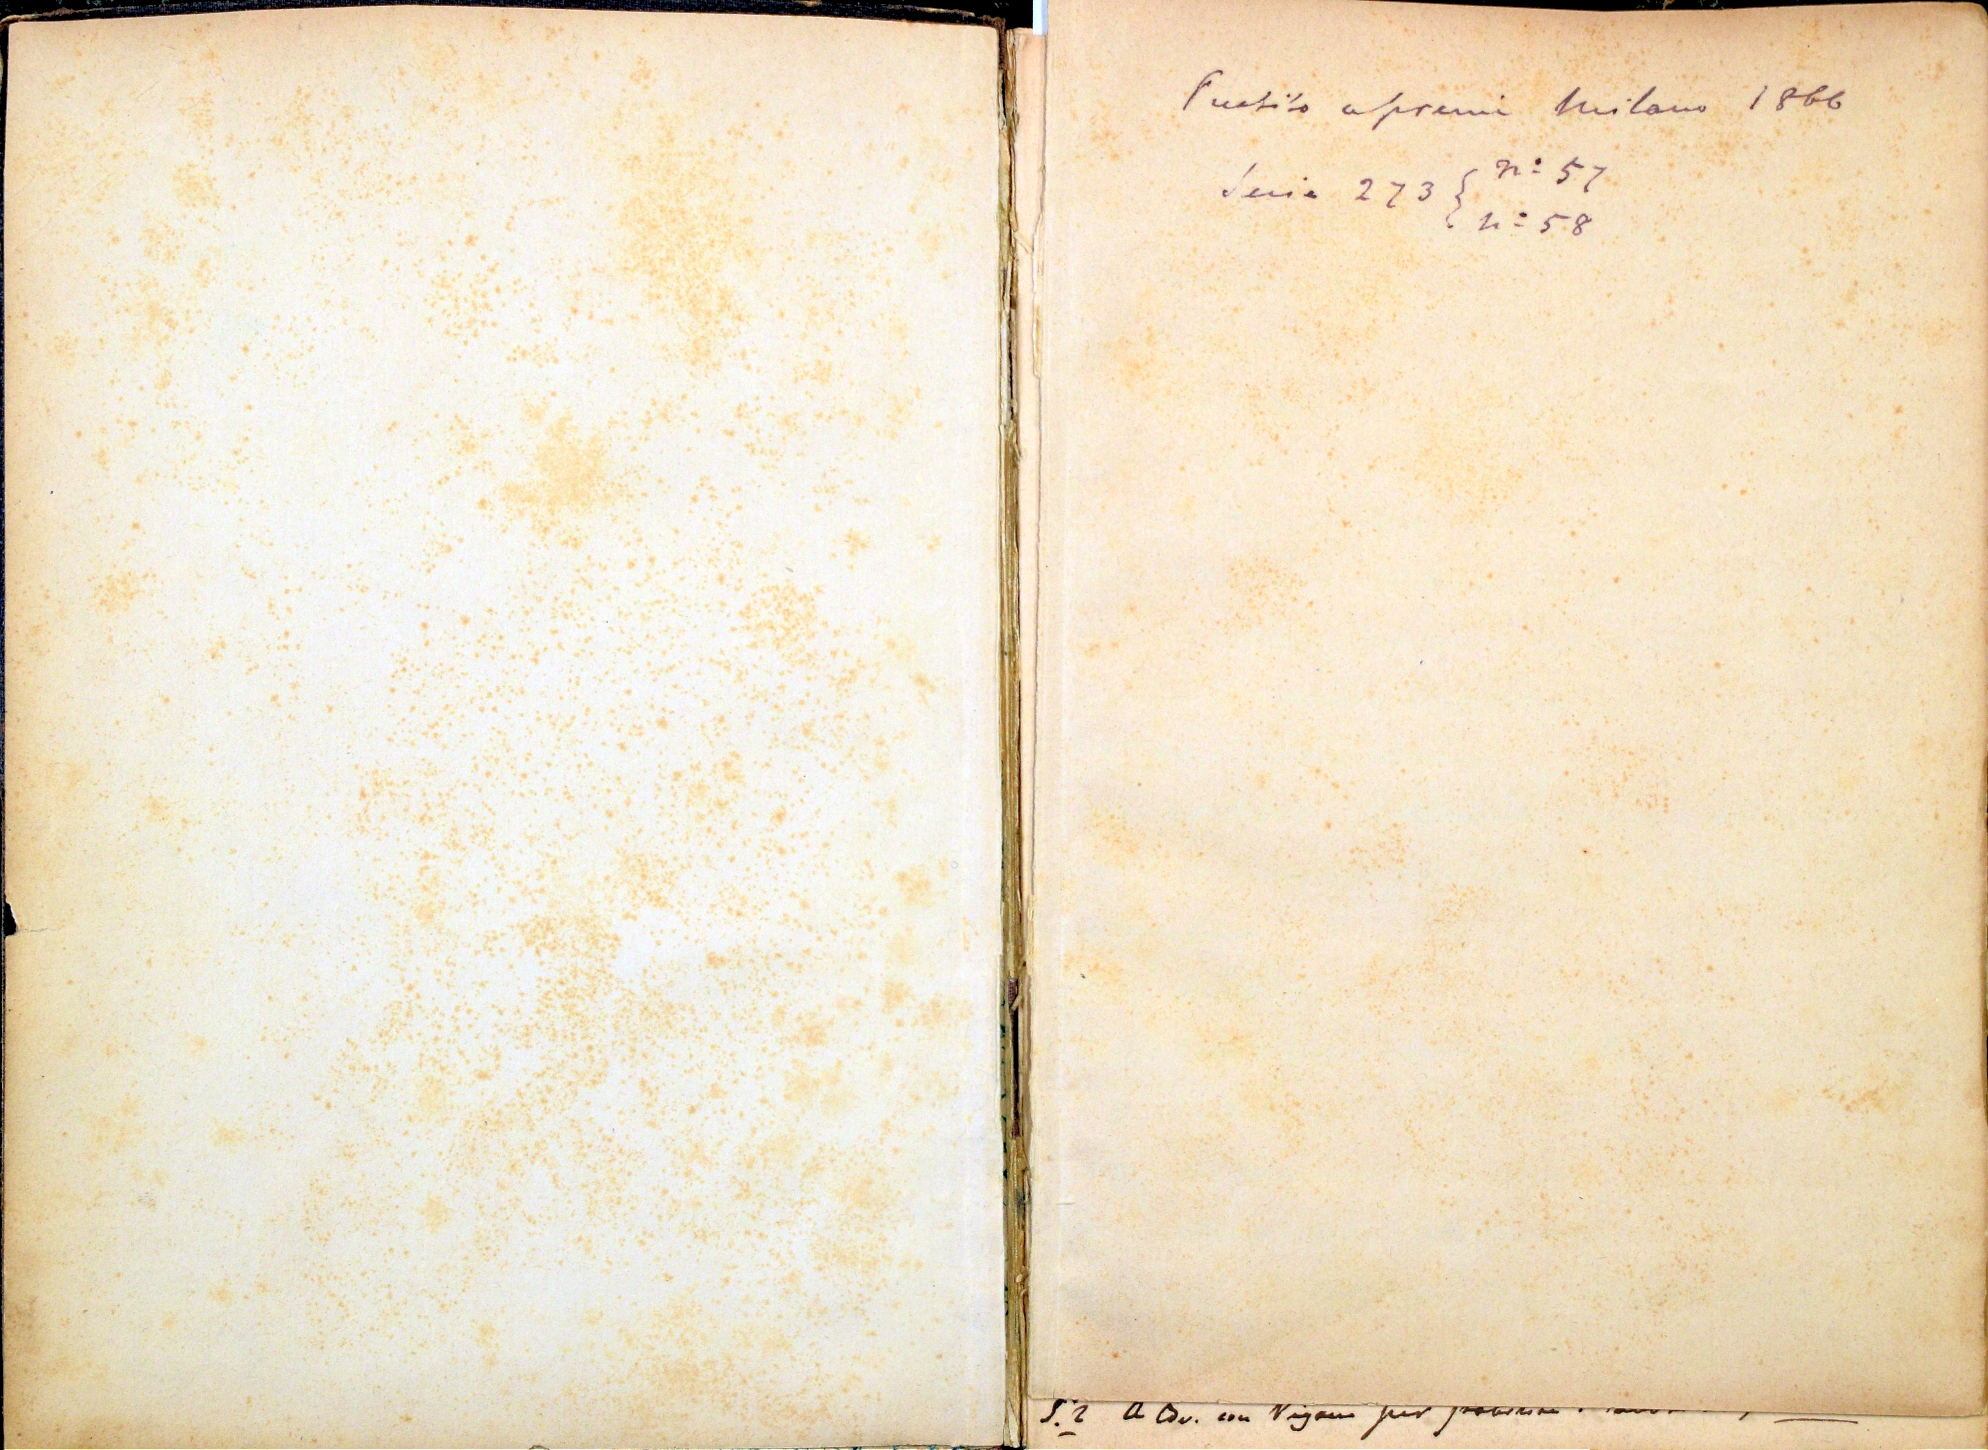 Prestito a premi Milano 1866
Serie 273 { nº 57
nº 58
5.2 A Cav. con Vigano per